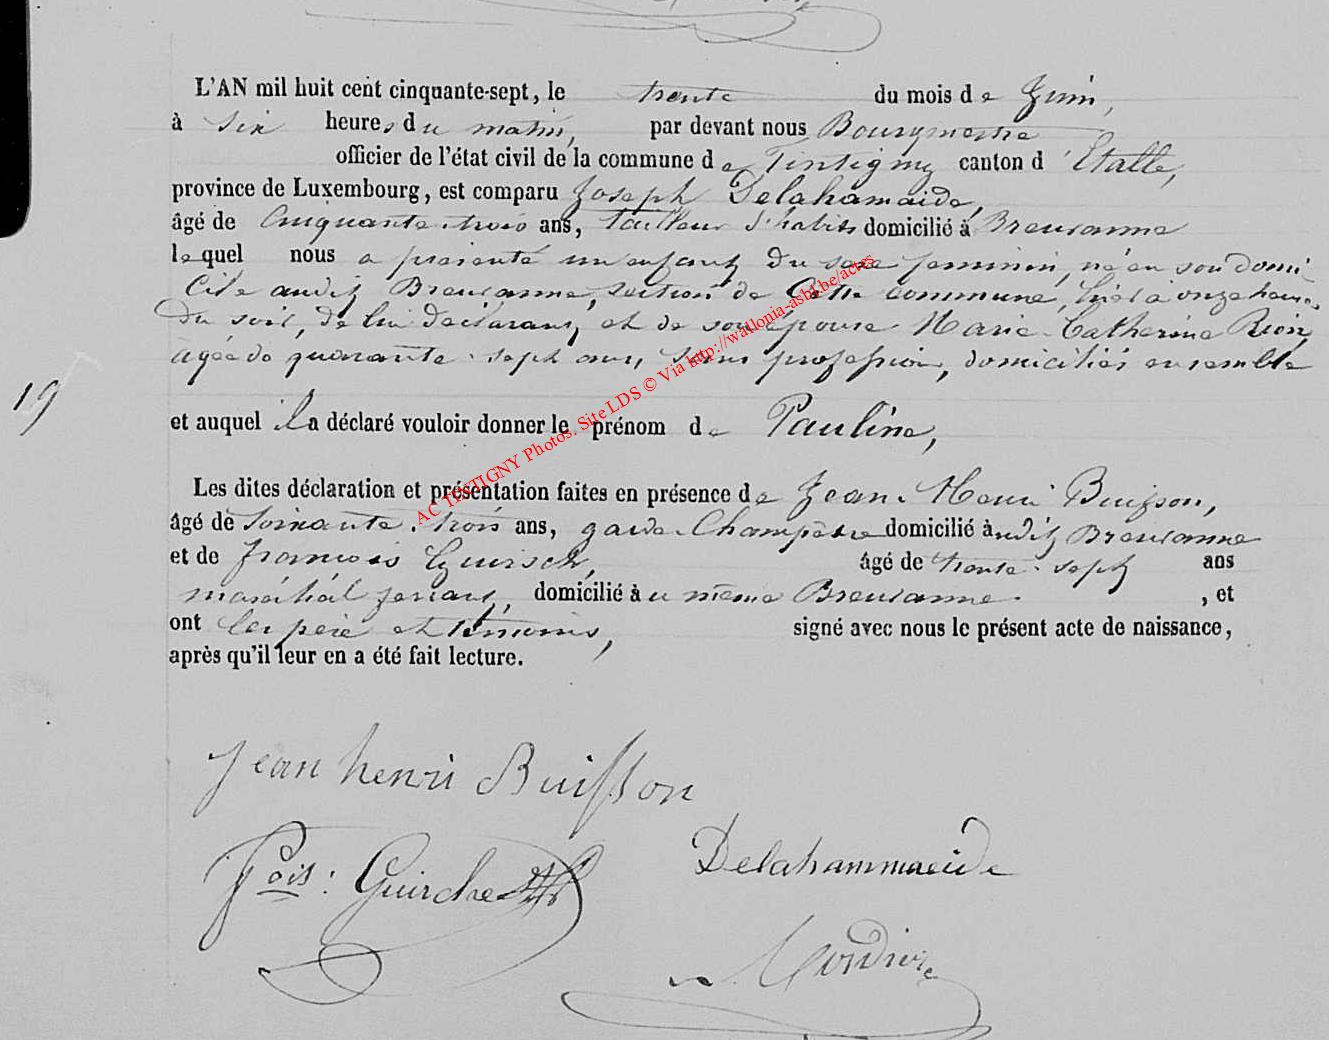 L'AN mil huit cent cinquante-sept, le trente du mois de Juin,
à six heures du matin, par devant nous Bourgmestre
officier de l'état civil de la commune de Tintigny canton d'Etalle,
province de Luxembourg, est comparu Joseph Delahamaide,
âgé de cinquante-trois ans, tailleur d'habits domicilié à Breuvanne
lequel nous a présenté un enfant du sexe feminin, né en son domi-
cile audit Breuvanne, section de cette commune, hier à onze heures
du soir, de lui déclarant, et de son épouse Marie-Catherine Rion,
agée de quarante-sept ans, sans profession, domiciliés ensemble
19
et auquel il a déclaré vouloir donner le prénom de Pauline,
Les dites déclaration et présentation faites en présence de Jean-Henri Buisson,
âgé de soixante-trois ans, garde-Champêtre domicilié audit Breuvanne
et de François Guirsch, âgé de trente-sept ans
maréchal ferrant, domicilié à u même Breuvanne. , et
ont les père et témoins, signé avec nous le présent acte de naissance,
après qu'il leur en a été fait lecture.
Jean henri Buisson
fçois: Guirche
Delahammaeide
AC TINTIGNY Photos. Site LDS © Via http://wallonia-asbl.be/actes